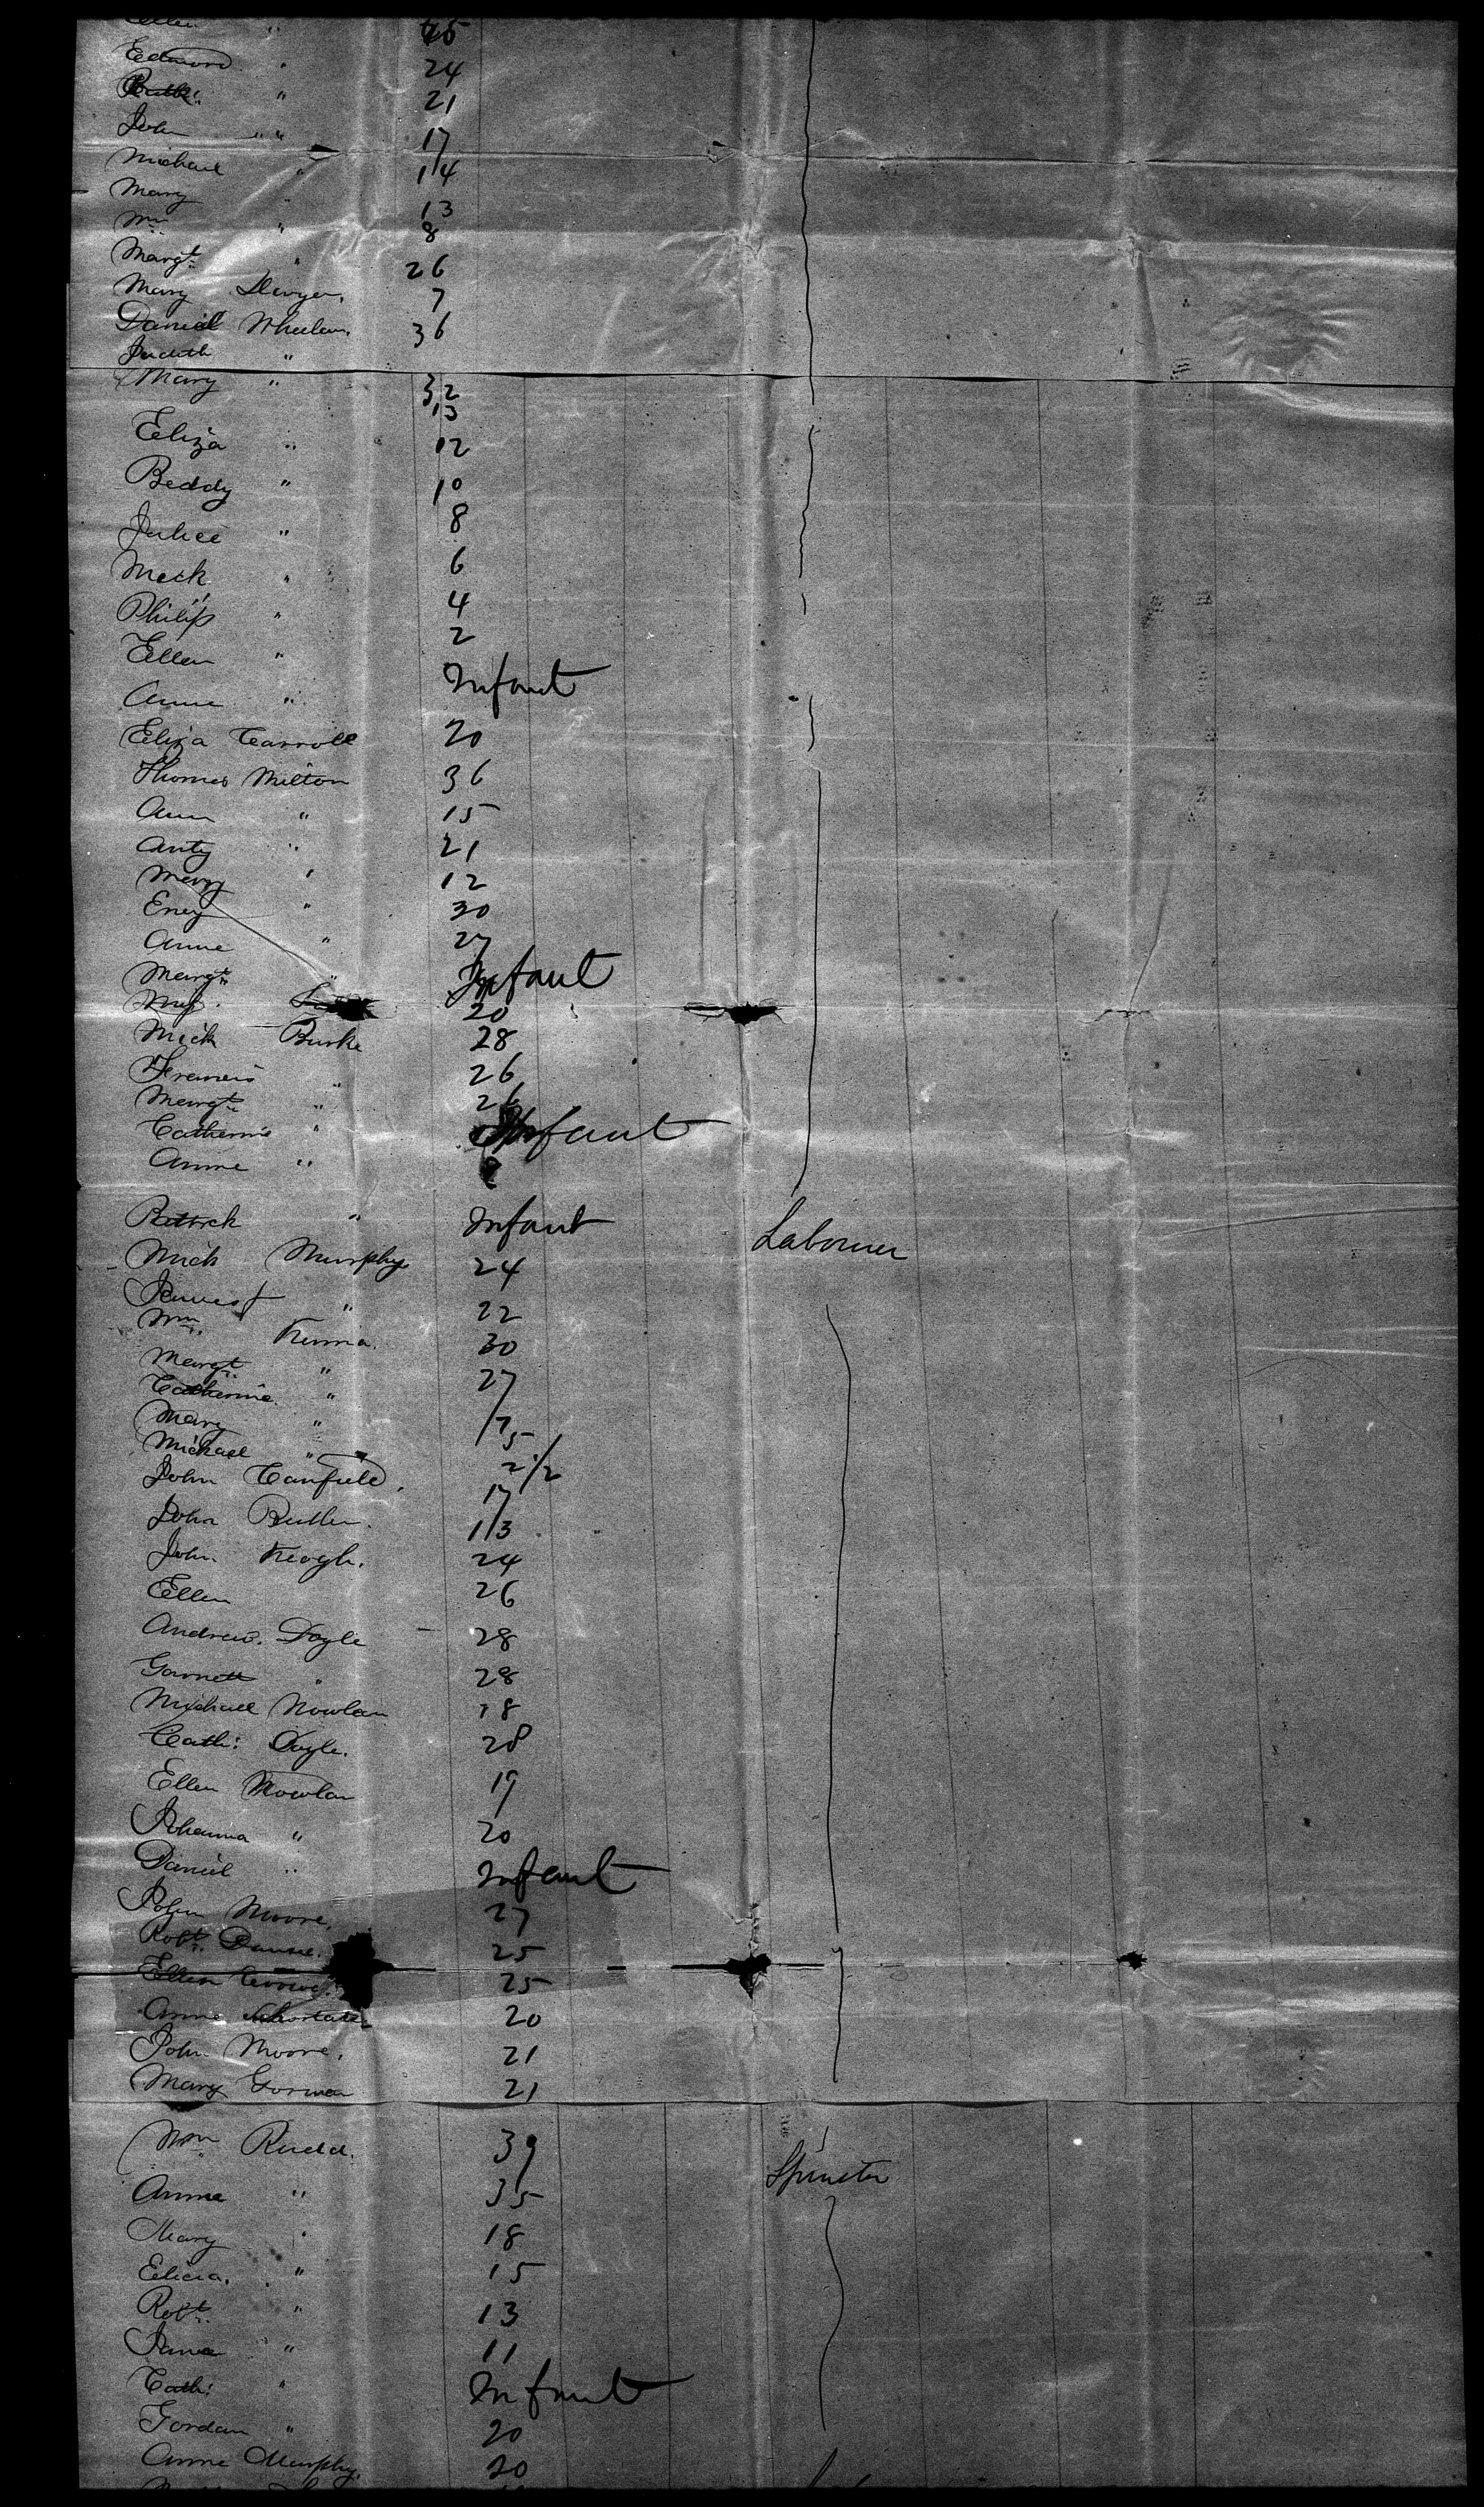 Ellen " 25
Edmond " 24
" 21
John " " 17
Michael " 14
Mary " 13
Wm " 8
Margt " 26
Mary Dwyer. 7
Daniel Whelan. 36
Judith "
Mary " 32
13
Eliza " 12
Beddy " 10
Juliee " 8
Mick " 6
Philip " 4
Ellen " 2
Anne " Infant
Eliza Carroll 20
Thomas Milton 36
Ann " 15
Anty " 21
Mary " 12
Eney " 30
Anne " 27
Margt " Infant
20
Mick Burke 28
Francis " 26
Margt " 26
Catherine " Infant
Anne "
Patrick " Infant Labourer
Mick Murphy 24
" 22
Wm. 30
Margt " 27
Catherine " 17
Mary " 5
Michael " 2 1/2
John Canfield, 17
John Butler. 13
John Keogh. 24
Ellen 26
Andrew. Doyle 28
Garrett " 28
Michael Nowlan 18
Cath: Doyle. 28
Ellen Nowlan 19
Johanna " 20
Daniel " Infant
John Moore, 27
Robt. 25
Ellen 25
Anne 20
John Moore, 21
Mary Gorman 21
Wm Rudd. 39
Anne " 35 Spinster
Mary " 18
Elicia. " 15
Robt. " 13
Jane " 11
Cath: " Infant
Jordan " 20
Anne Murphy. 20